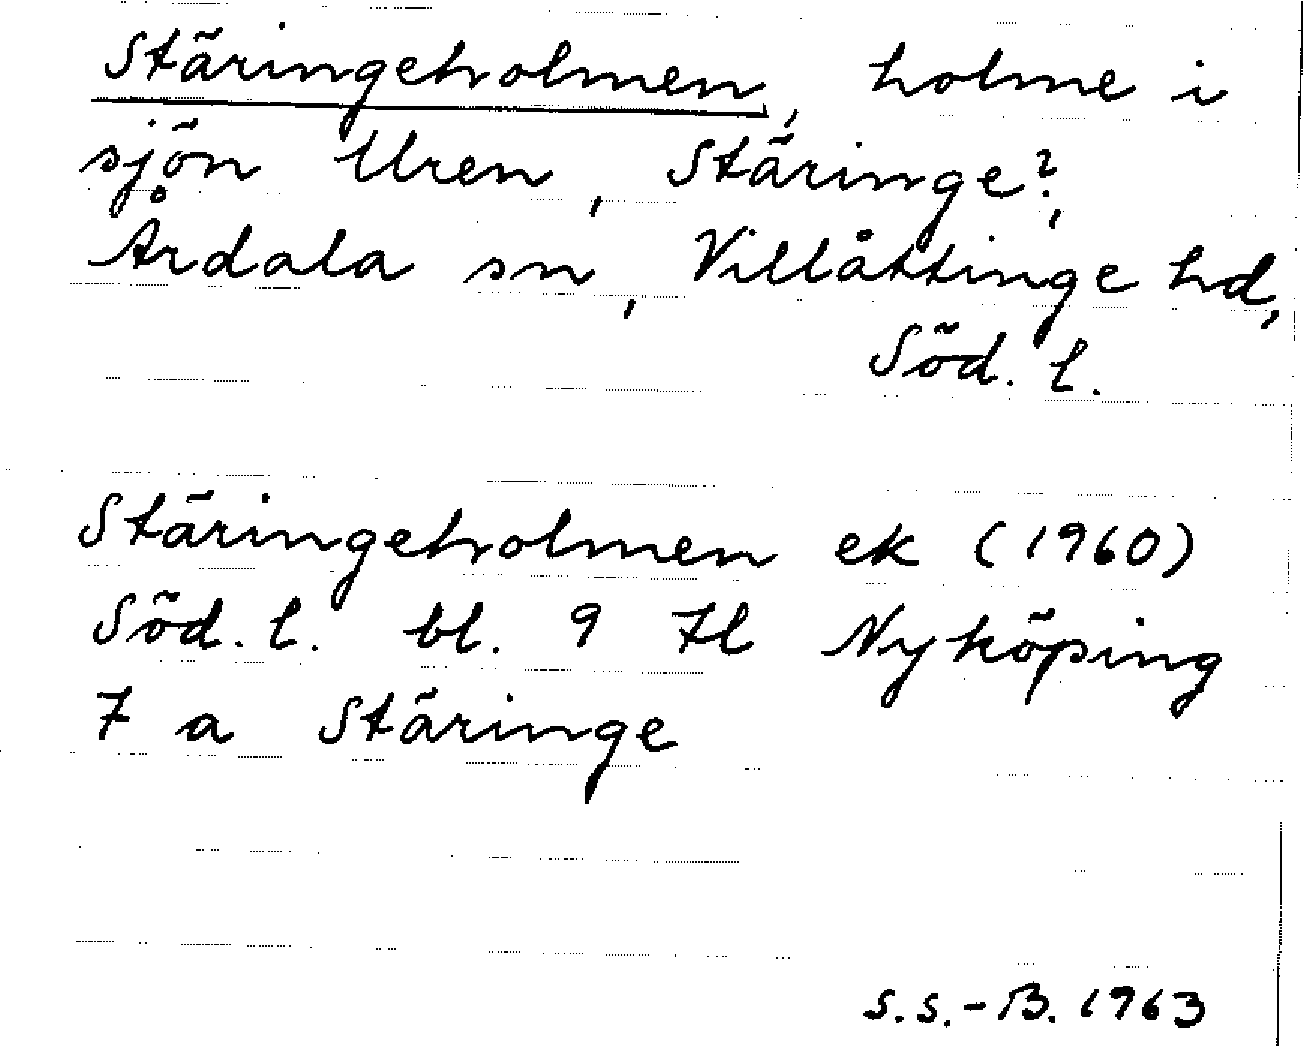 Stäringeholmen, holme i
sjön Uren, Stäringe?,
Årdala sn, Villåttinge hd,
Söd. l.
Stäringeholmen ek (1960)
Söd. l. bl. 9 H Nyköping
7 a Stäringe
S.S.-B. 1963